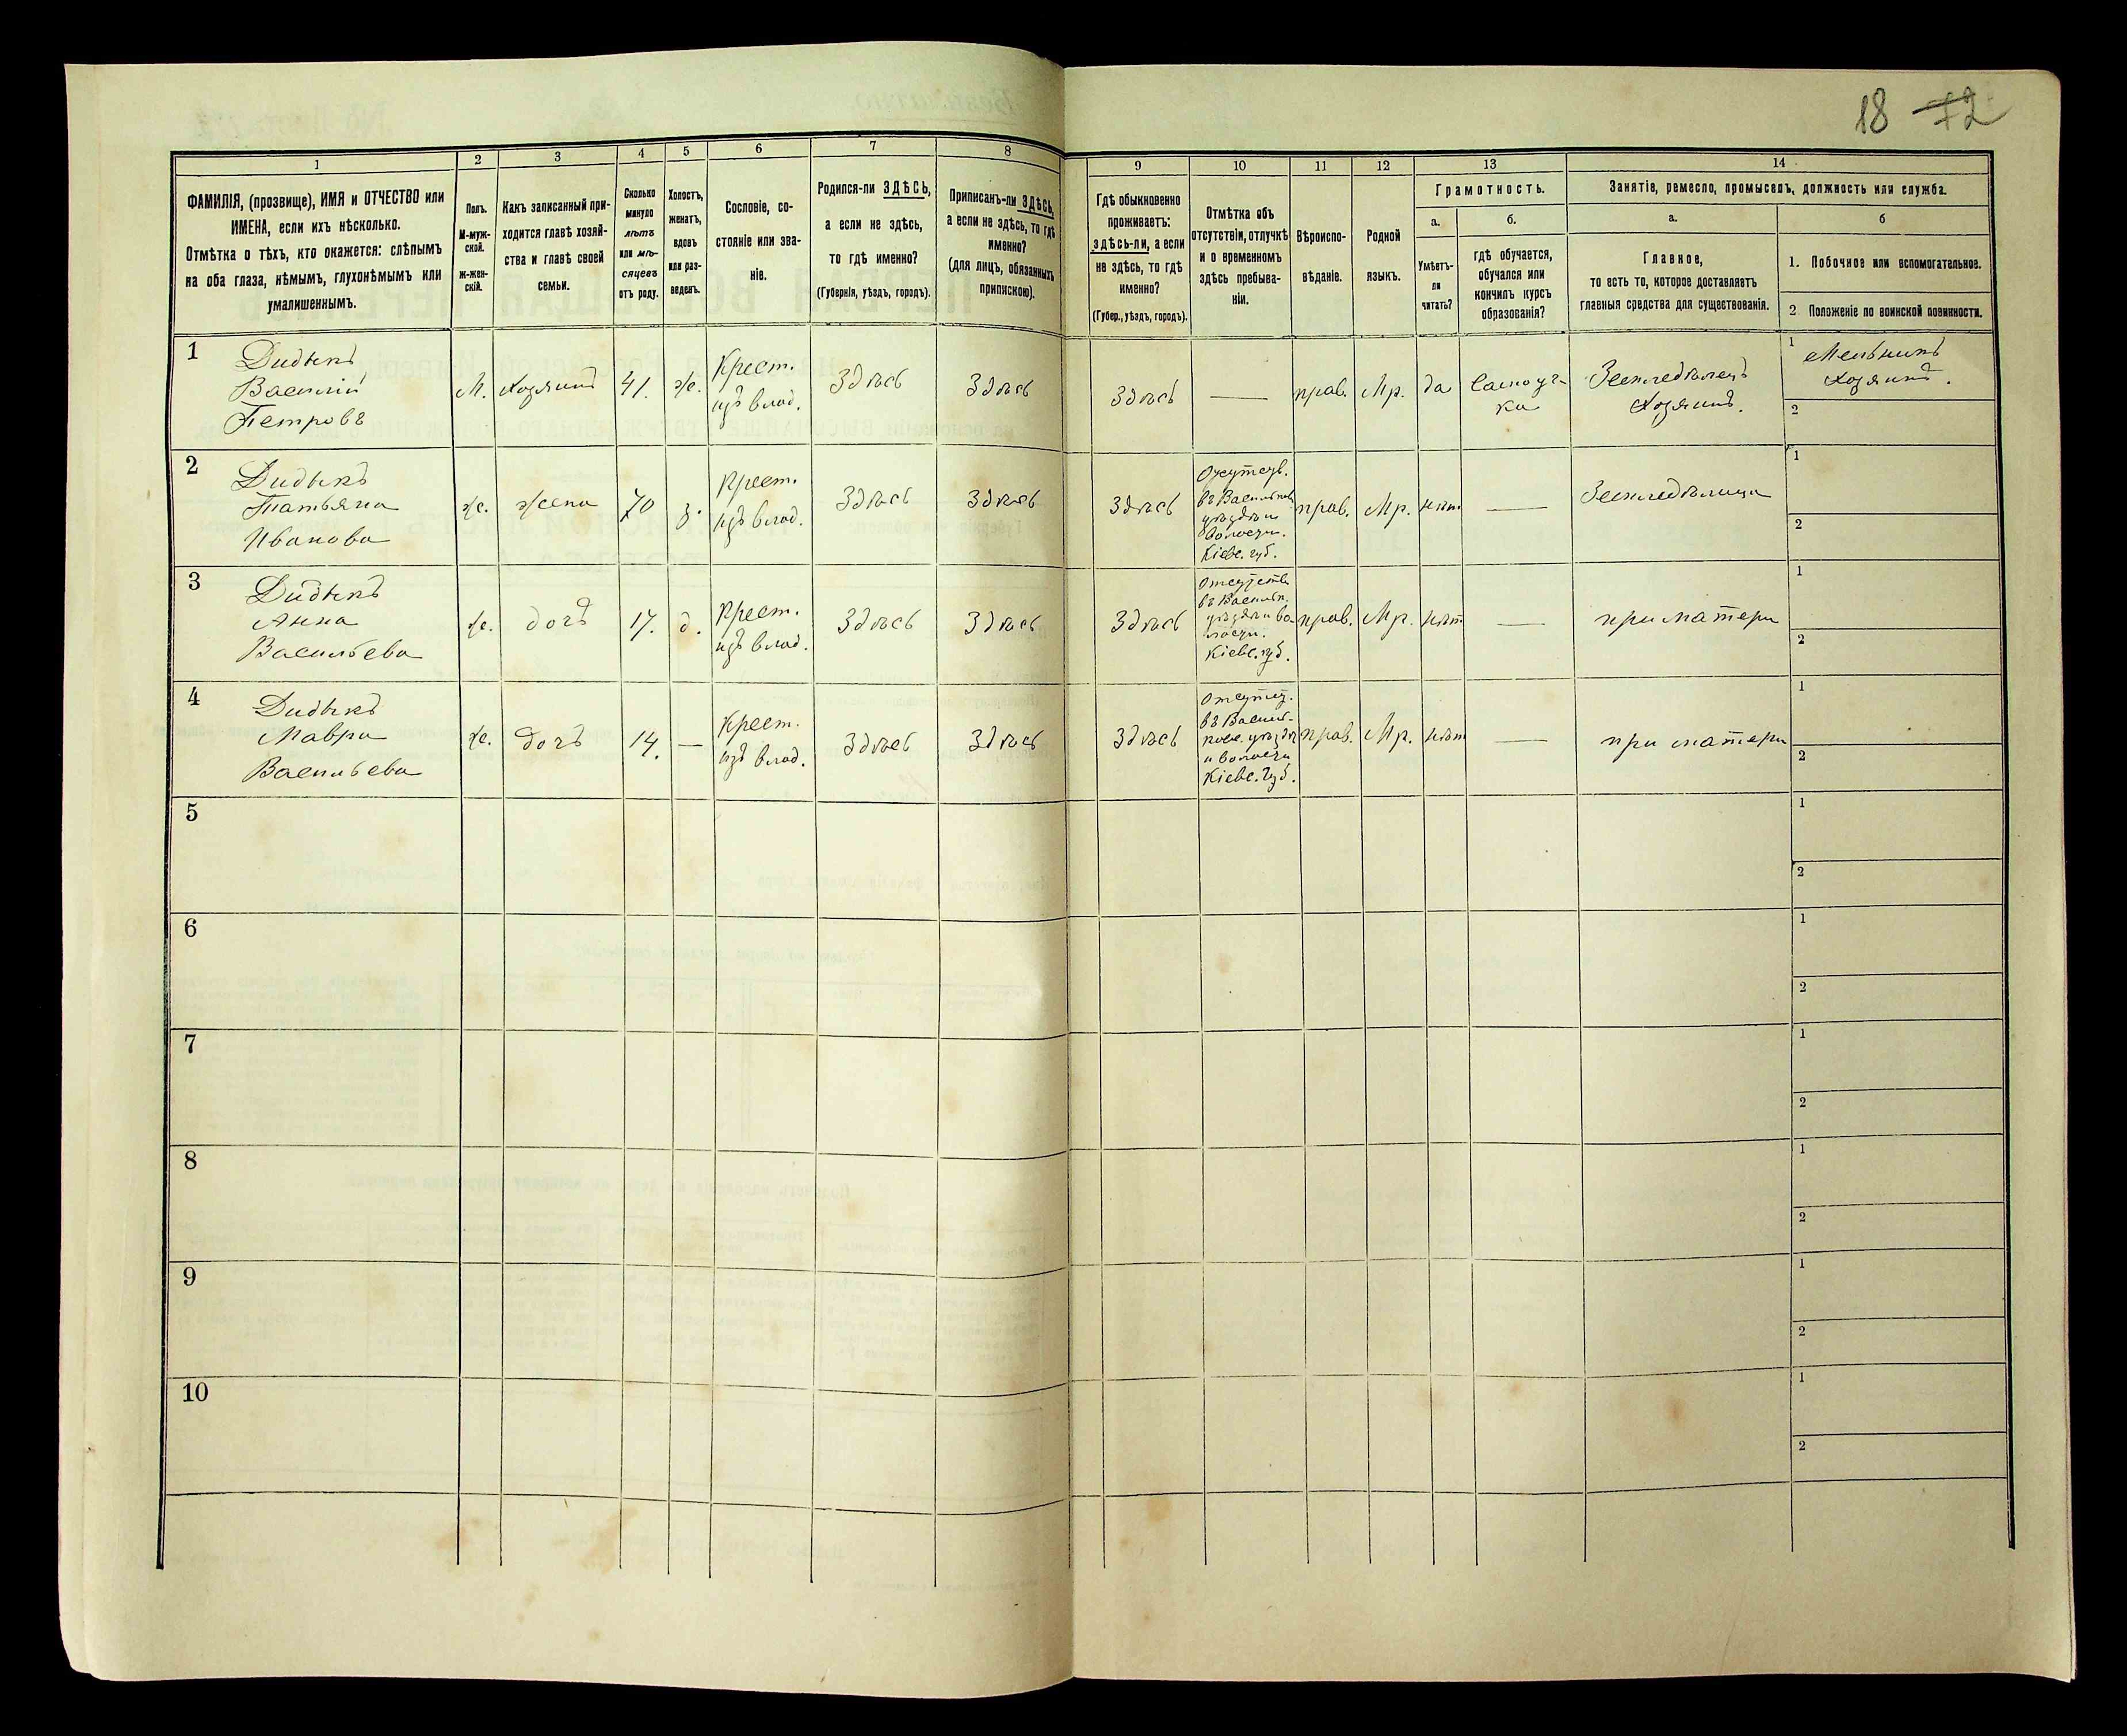 18 72
1
2
3
4
5
6
7
8
9
10
11
12
13
14
ФАМИЛІЯ, (прозвище), ИМЯ и ОТЧЕСТВО или
ИМЕНА, если ихъ нѣсколько.
Отмѣтка о тѣхъ, кто окажется: слѣпымъ
на оба глаза, нѣмымъ, глухонѣмымъ или
умалишеннымъ.
Полъ.
М-муж-
ской.
ж-жен-
скій.
Какъ записанный при-
ходится главѣ хозяй-
ства и главѣ своей
семьи.
Сколько
минуло
лѣтъ
или мѣ-
сяцевъ
отъ роду.
Холостъ,
женатъ,
вдовъ
или раз-
веденъ.
Сословіе, со-
стояніе или зва-
ніе.
Родился-ли ЗДѢСЬ,
а если не здѣсь,
то гдѣ именно?
(Губернія, уѣздъ, городъ).
Приписанъ-ли ЗДѢСЬ,
а если не здѣсь, то гдѣ
именно?
(для лицъ, обязанныхъ
припискою).
Гдѣ обыкновенно
проживаетъ:
здѣсь-ли, а если
не здѣсь, то гдѣ
именно?
(Губер., уѣздъ, городъ).
Отмѣтка объ
отсутствіи, отлучкѣ
и о временномъ
здѣсь пребыва-
ніи.
Вѣроиспо-
вѣданіе.
Родной
языкъ.
Грамотность.
а.
б.
Умѣетъ-
ли
читать?
гдѣ обучается,
обучался или
кончилъ курсъ
образованія?
Занятіе, ремесло, промыселъ, должность или служба.
а.
б
Главное,
то есть то, которое доставляетъ
главныя средства для существованія.
1. Побочное или вспомогательное.
2 Положеніе по воинской повинности.
1
Дидыкъ
Василій
Петровъ
М.
Хозяинъ
41.
ж.
Крест.
изъ влад.
Здѣсь
Здѣсь
Здѣсь
—
прав.
Мр.
да
Самоуч-
ка
Земледѣлецъ
Хозяинъ.
1 Мельникъ
Хозяинъ.
2
2
Дидыкъ
Татьяна
Иванова
ж.
жена
70
з.
Крест.
изъ влад.
Здѣсь
Здѣсь
Здѣсь
въ Васильков.
уѣздѣ и
волости.
Кіевс. губ.
прав.
Мр.
нѣт
—
Земледѣлица
1
2
3
Дидыкъ
Анна
Васильева
ж.
дочъ
17.
д.
Крест.
изъ влад.
Здѣсь
Здѣсь
Здѣсь
Отсутств
въ Васильк.
уѣздѣ и во
лости.
Кіевс. губ.
прав.
Мр.
нѣт
—
при матери
1
2
4
Дидыкъ
Мавра
Васильева
ж.
дочъ
14.
—
Крест.
изъ влад.
Здѣсь
Здѣсь
Здѣсь
Отсутст.
въ Василь-
ковс. уѣздѣ
и волости
Кіевс. Губ.
прав.
Мр.
нѣт
—
при матери
1
2
5
1
2
6
1
2
7
1
2
8
1
2
9
1
2
10
1
2